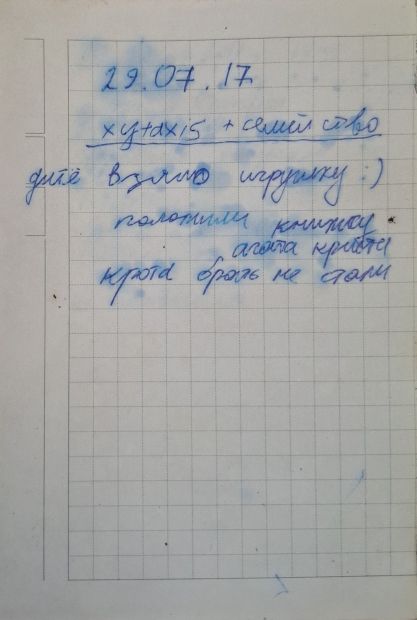 29.07.17
xy+dx15 + семейство
дитё взяло игрушку :)
положили книжку
агата кристи
крота брать не стали